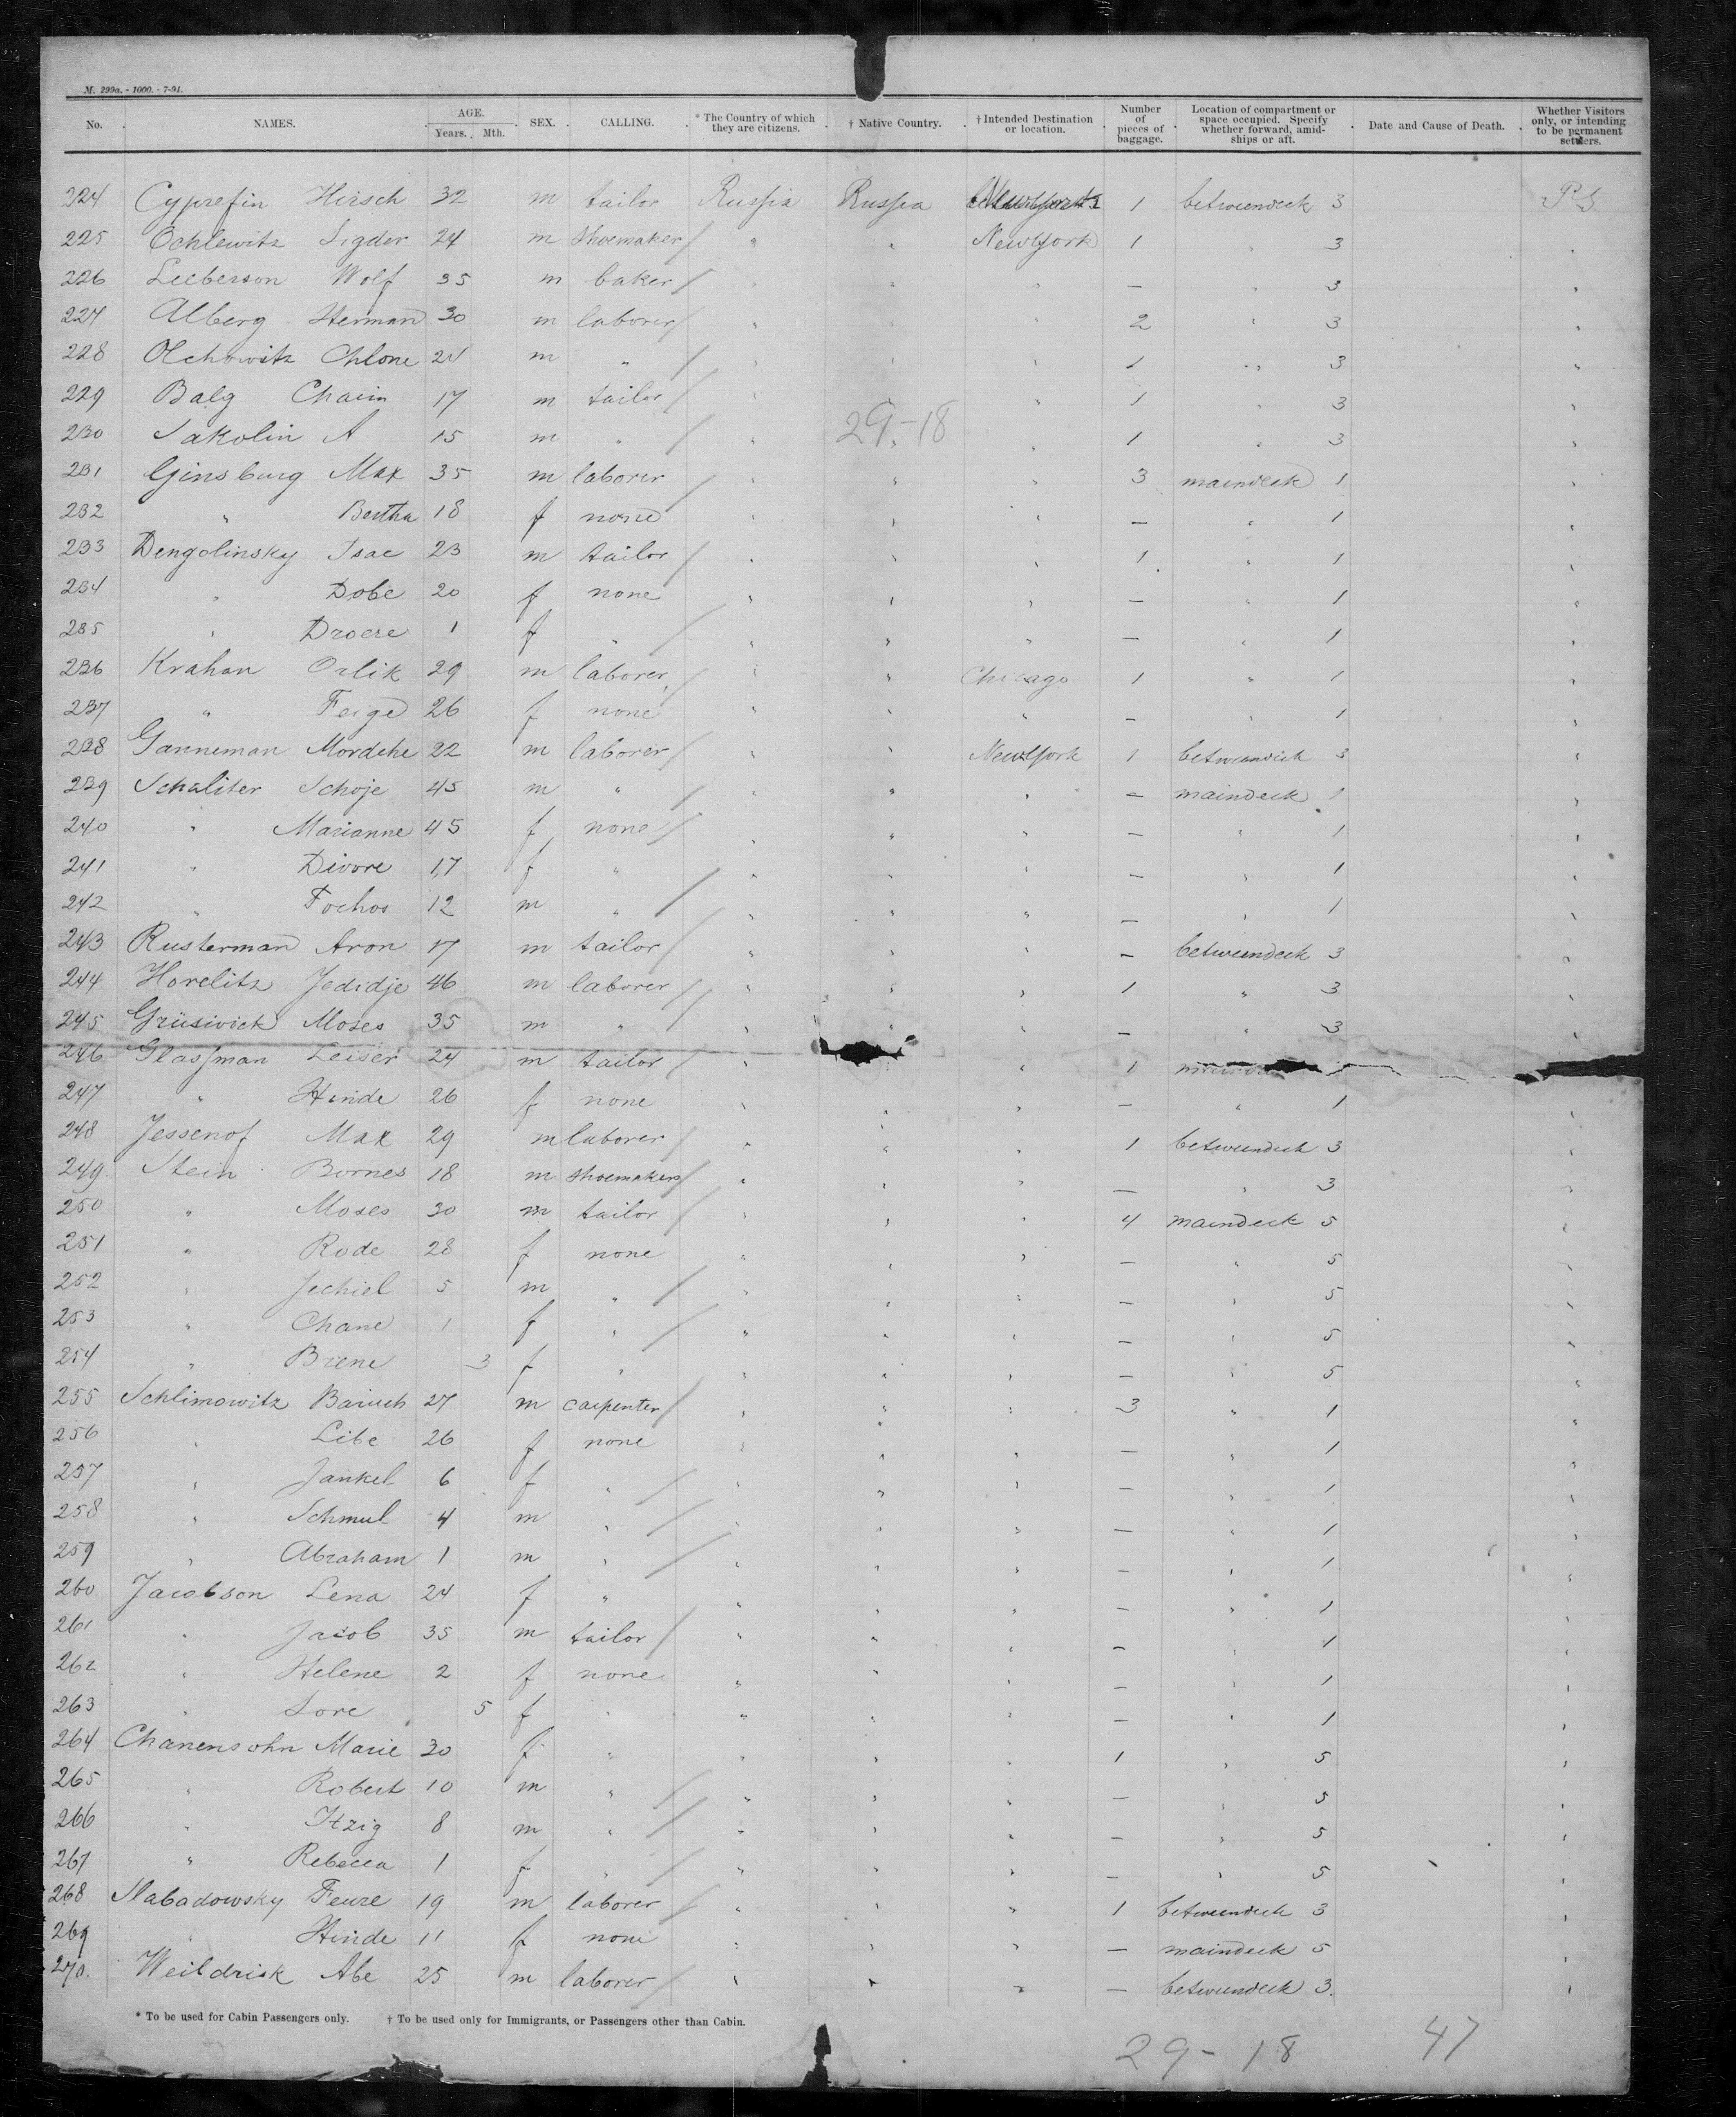 M. 299a. - 1000. - 7-91.
No. NAMES. AGE. Years. Mth. SEX. CALLING. * The Country of which they are citizens. † Native Country. † Intended Destination or location. Number of pieces of baggage. Location of compartment or space occupied. Specify whether forward, amidships or aft. Date and Cause of Death. Whether Visitors only, or intending to be permanent settlers.
224 Cyprefin Hirsch 32 m tailor Russia Russia 1 betweendeck 3 PS
225 Ochlewitz Sigder 24 m shoemaker " " New York 1 " 3 "
226 Leeberson Wolf 35 m baker " " " — " 3 "
227 Alberg Herman 30 m laborer " " " 2 " 3 "
228 Olchowitz Chlone 24 m " " " " 1 " 3 "
229 Balg Chaim 17 m tailor " " 1 " 3 "
29-18
230 Sakolin A 15 m " " " " 1 " 3 "
231 Ginsburg Max 35 m laborer " " " 3 maindeck 1 "
232 " Bertha 18 f none " " " — " 1 "
233 Dengolinsky Isac 23 m tailor " " " 1 " 1 "
234 " Dobe 20 f none " " " — " 1 "
235 " Droese 1 f " " " " — " 1 "
236 Krahan Orlik 29 m laborer " " Chicago 1 " 1 "
237 " Feige 26 f none " " " — " 1 "
238 Ganneman Mordche 22 m laborer " " New York 1 betweendeck 3 "
239 Schaliter Schoje 45 m " " " " — maindeck 1 "
240 " Marianne 45 f none " " " — " 1 "
241 " Divore 17 f " " " " — " 1 "
242 " Fochos 12 m " " " " — " 1 "
243 Rusterman Aron 17 m tailor " " " — betweendeck 3 "
244 Horelitz Jedidje 46 m laborer " " " 1 " 3 "
245 Grüsivick Moses 35 m " " " " — " 3 "
246 Glassman Leiser 24 m tailor " " " 1 1
247 " Hinde 26 f none " " " — " 1 "
248 Jessenof Max 29 m laborer " " " 1 betweendeck 3 "
249 Stein Bornes 18 m shoemaker " " " — " 3 "
250 " Moses 30 m tailor " " " 4 maindeck 5 "
251 " Rode 28 f none " " " — " 5 "
252 " Jechiel 5 m " " " " — " 5 "
253 " Chane 1 f " " " " — " 5 "
254 " Briene 3 f " " " " — " 5 "
255 Schlimowitz Baruch 27 m carpenter " " " 3 " 1 "
256 " Libe 26 f none " " " — " 1 "
257 " Jankel 6 f " " " " — " 1 "
258 " Schmul 4 m " " " " — " 1 "
259 " Abraham 1 m " " " " — " 1 "
260 Jacobson Lena 24 f " " " " — " 1 "
261 " Jacob 35 m tailor " " " — " 1 "
262 " Helene 2 f none " " " — " 1 "
263 " Sore 5 f " " " " — " 1 "
264 Chanensohn Marie 30 f " " " " 1 " 5 "
265 " Robert 10 m " " " " — " 5 "
266 " Itzig 8 m " " " " — " 5 "
267 " Rebecca 1 f " " " " — " 5 "
268 Slabadowsky Feure 19 m laborer " " " 1 betweendeck 3 "
269 " Hinde 11 f none " " " — maindeck 5 "
270. Weildrisk Abe 25 m laborer " " " — betweendeck 3. "
* To be used for Cabin Passengers only. † To be used only for Immigrants, or Passengers other than Cabin.
29-18 47